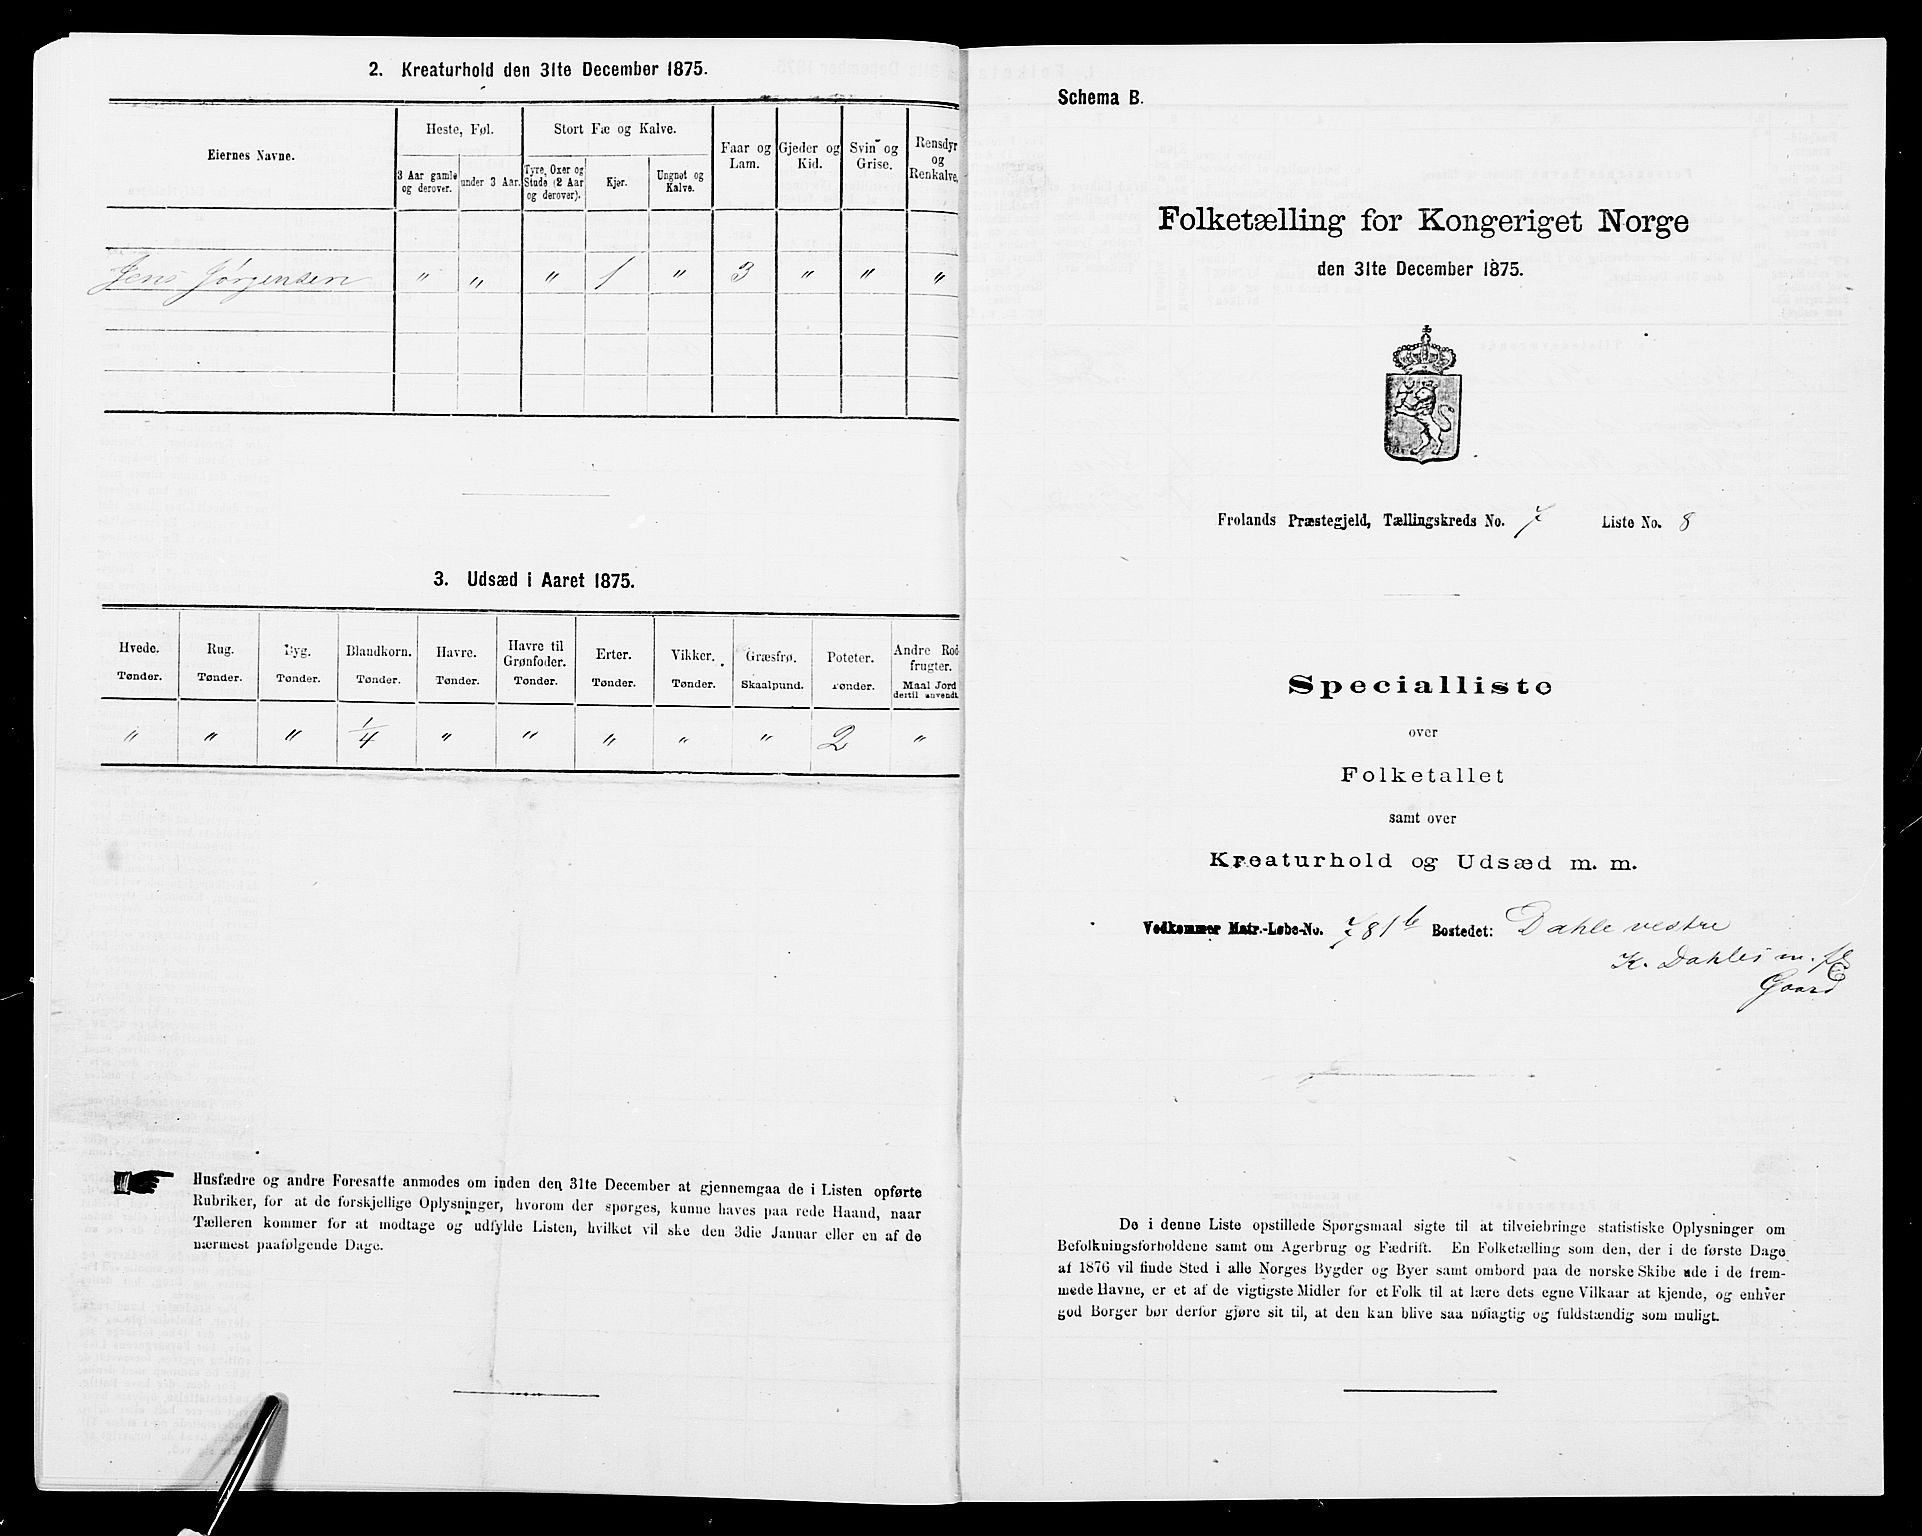 2. Kreaturhold den 31te December 1875.
Eiernes Navne.
Heste, Føl.
Stort Fæ og Kalve.
3 Aar gamle og derover.
under 3 Aar.
Tyre, Oxer og Stude (2 Aar og derover).
Kjør.
Ungnøt og Kalve.
Faar og Lam.
Gjeder og Kid.
Svin og Grise.
Rensdyr og Renkalve.
Jens Jørgensen " " " 1 " 3 " " "
3. Udsæd i Aaret 1875.
Hvede. Rug. Byg. Blandkorn. Havre. Havre til Grønfoder. Erter. Vikker. Græsfrø. Poteter. Andre Rodfrugter.
Tønder. Tønder. Tønder. Tønder. Tønder. Tønder. Tønder. Tønder. Skaalpund. Tønder. Maal Jord dertil anvendt.
" " " 1/4 " " " " " 2 "
Husfædre og andre Foresatte anmodes om inden den 31te December at gjennemgaa de i Listen opførte
Rubriker, for at de forskjellige Oplysninger, hvorom der spørges, kunne haves paa rede Haand, naar
Tælleren kommer for at modtage og udfylde Listen, hvilket vil ske den 3die Januar eller en af de
nærmest paafølgende Dage.
Schema B.
Folketælling for Kongeriget Norge
den 31te December 1875.
Frolands Præstegjeld, Tællingskreds No. 7 Liste No. 8
Specialliste
over
Folketallet
samt over
Kreaturhold og Udsæd m. m.
Vedkommer Matr.-Løbe-No. 781b Bostedet: Dahle vestre
K. Dahles m. fl
Gaard
De i denne Liste opstillede Spørgsmaal sigte til at tilveiebringe statistiske Oplysninger om
Befolkningsforholdene samt om Agerbrug og Fædrift. En Folketælling som den, der i de første Dage
af 1876 vil finde Sted i alle Norges Bygder og Byer samt ombord paa de norske Skibe ude i de frem-
mede Havne, er et af de vigtigste Midler for et Folk til at lære dets egne Vilkaar at kjende, og enhver
god Borger bør derfor gjøre sit til, at den kan blive saa nøiagtig og fuldstændig som muligt.